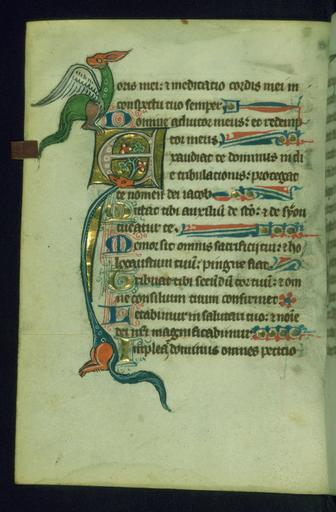 oris mei: et meditatio cordis mei in
conspectu tuo semper
Domine adiutor meus: et redemp
tor meus
Exaudiat te dominus in di
e tribulationis: protegat
te nomen dei iacob
Mittat tibi auxiliū de sc̄o: et de syon
tueatur te.
Memor sit omnis sacrificii tui: et ho
locaustum tuū: pingue fiat
Tribuat tibi secūdū cor tuū: et om
ne consilium tuum confirmet
Letabimur in salutari tuo: et noīe
dei nr̄i magnificabimur
Impleat dominus omnes petitio